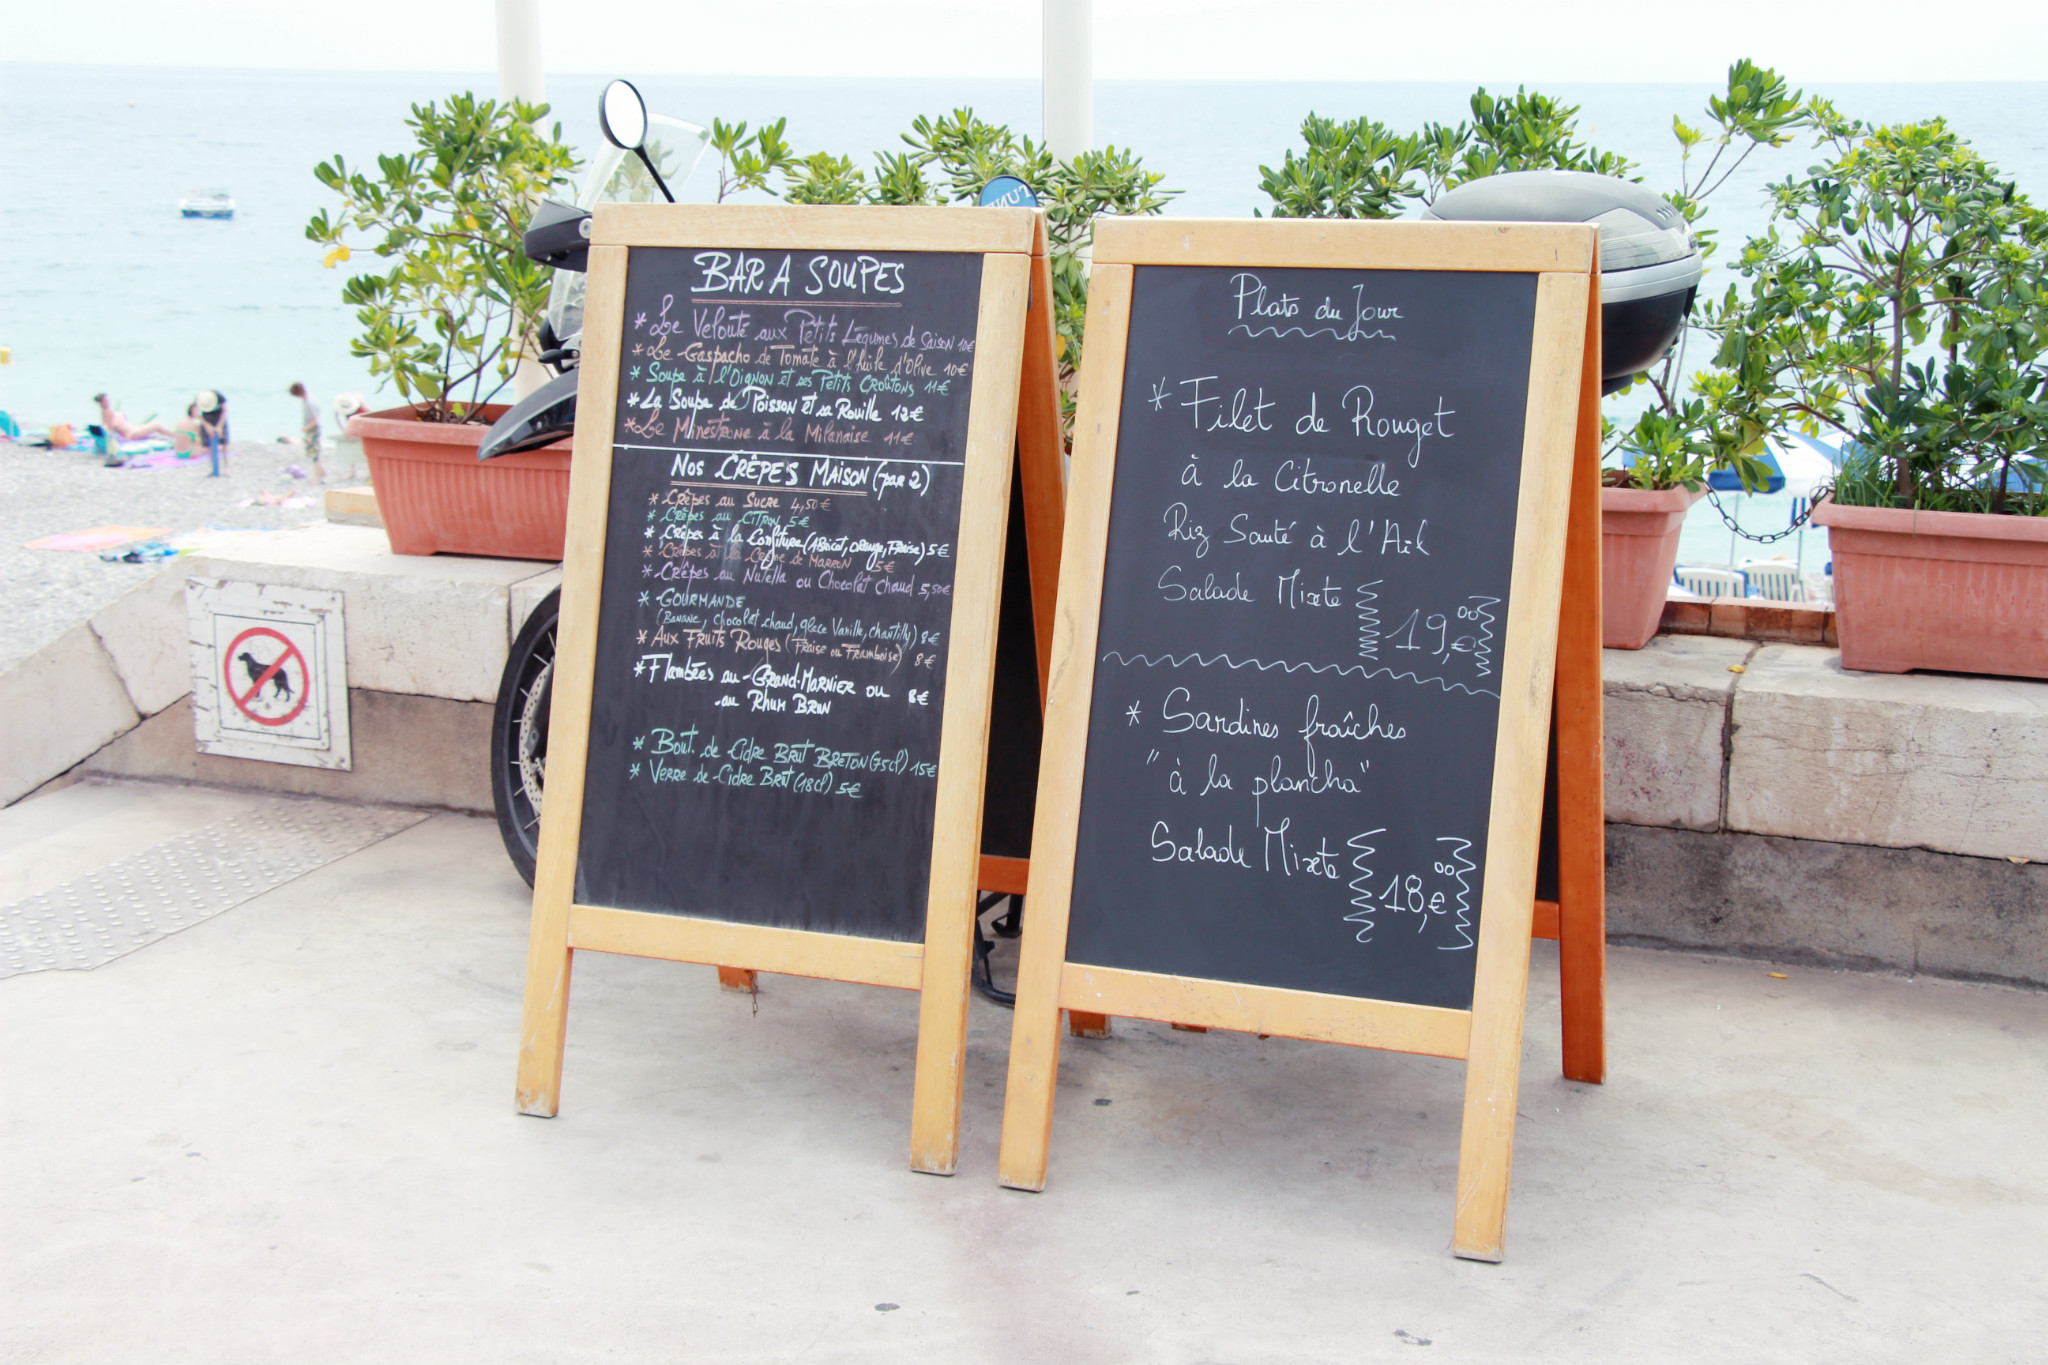 BAR A SOUPES
* Le Velouté aux Petits Légumes de Saison 10€
* Le Gaspacho de Tomate à l'huile d'Olive 10€
* Soupe à l'Oignon et ses Petits Croûtons 11€
* La Soupe de Poisson et sa Rouille 12€
* Le Minestrone à la Milanaise 11€
Nos CRÊPES MAISON (par 2)
* Crêpes au Sucre 4,50€
* Crêpes au CITRON 5€
* Crêpes à la Confiture (Abricot, Orange, Fraise) 5€
* Crêpes à la Crème de MARRON 5€
* Crêpes au Nutella ou Chocolat chaud 5,50€
* GOURMANDE
(Banane, chocolat chaud, glace Vanille, chantilly) 8€
* Aux Fruits Rouges (Fraise ou Framboise) 8€
* Flambées au GRAND-MARNIER ou 8€
au Rhum BRUN
* Bout. de Cidre BRUT BRETON (75cl) 15€
* Verre de Cidre BRUT (18cl) 5€
Plats du Jour
* Filet de Rouget
à la Citronelle
Riz Sauté à l'Ail
Salade Mixte 19,00€
* Sardines fraîches
"à la plancha"
Salade Mixte 18,00€